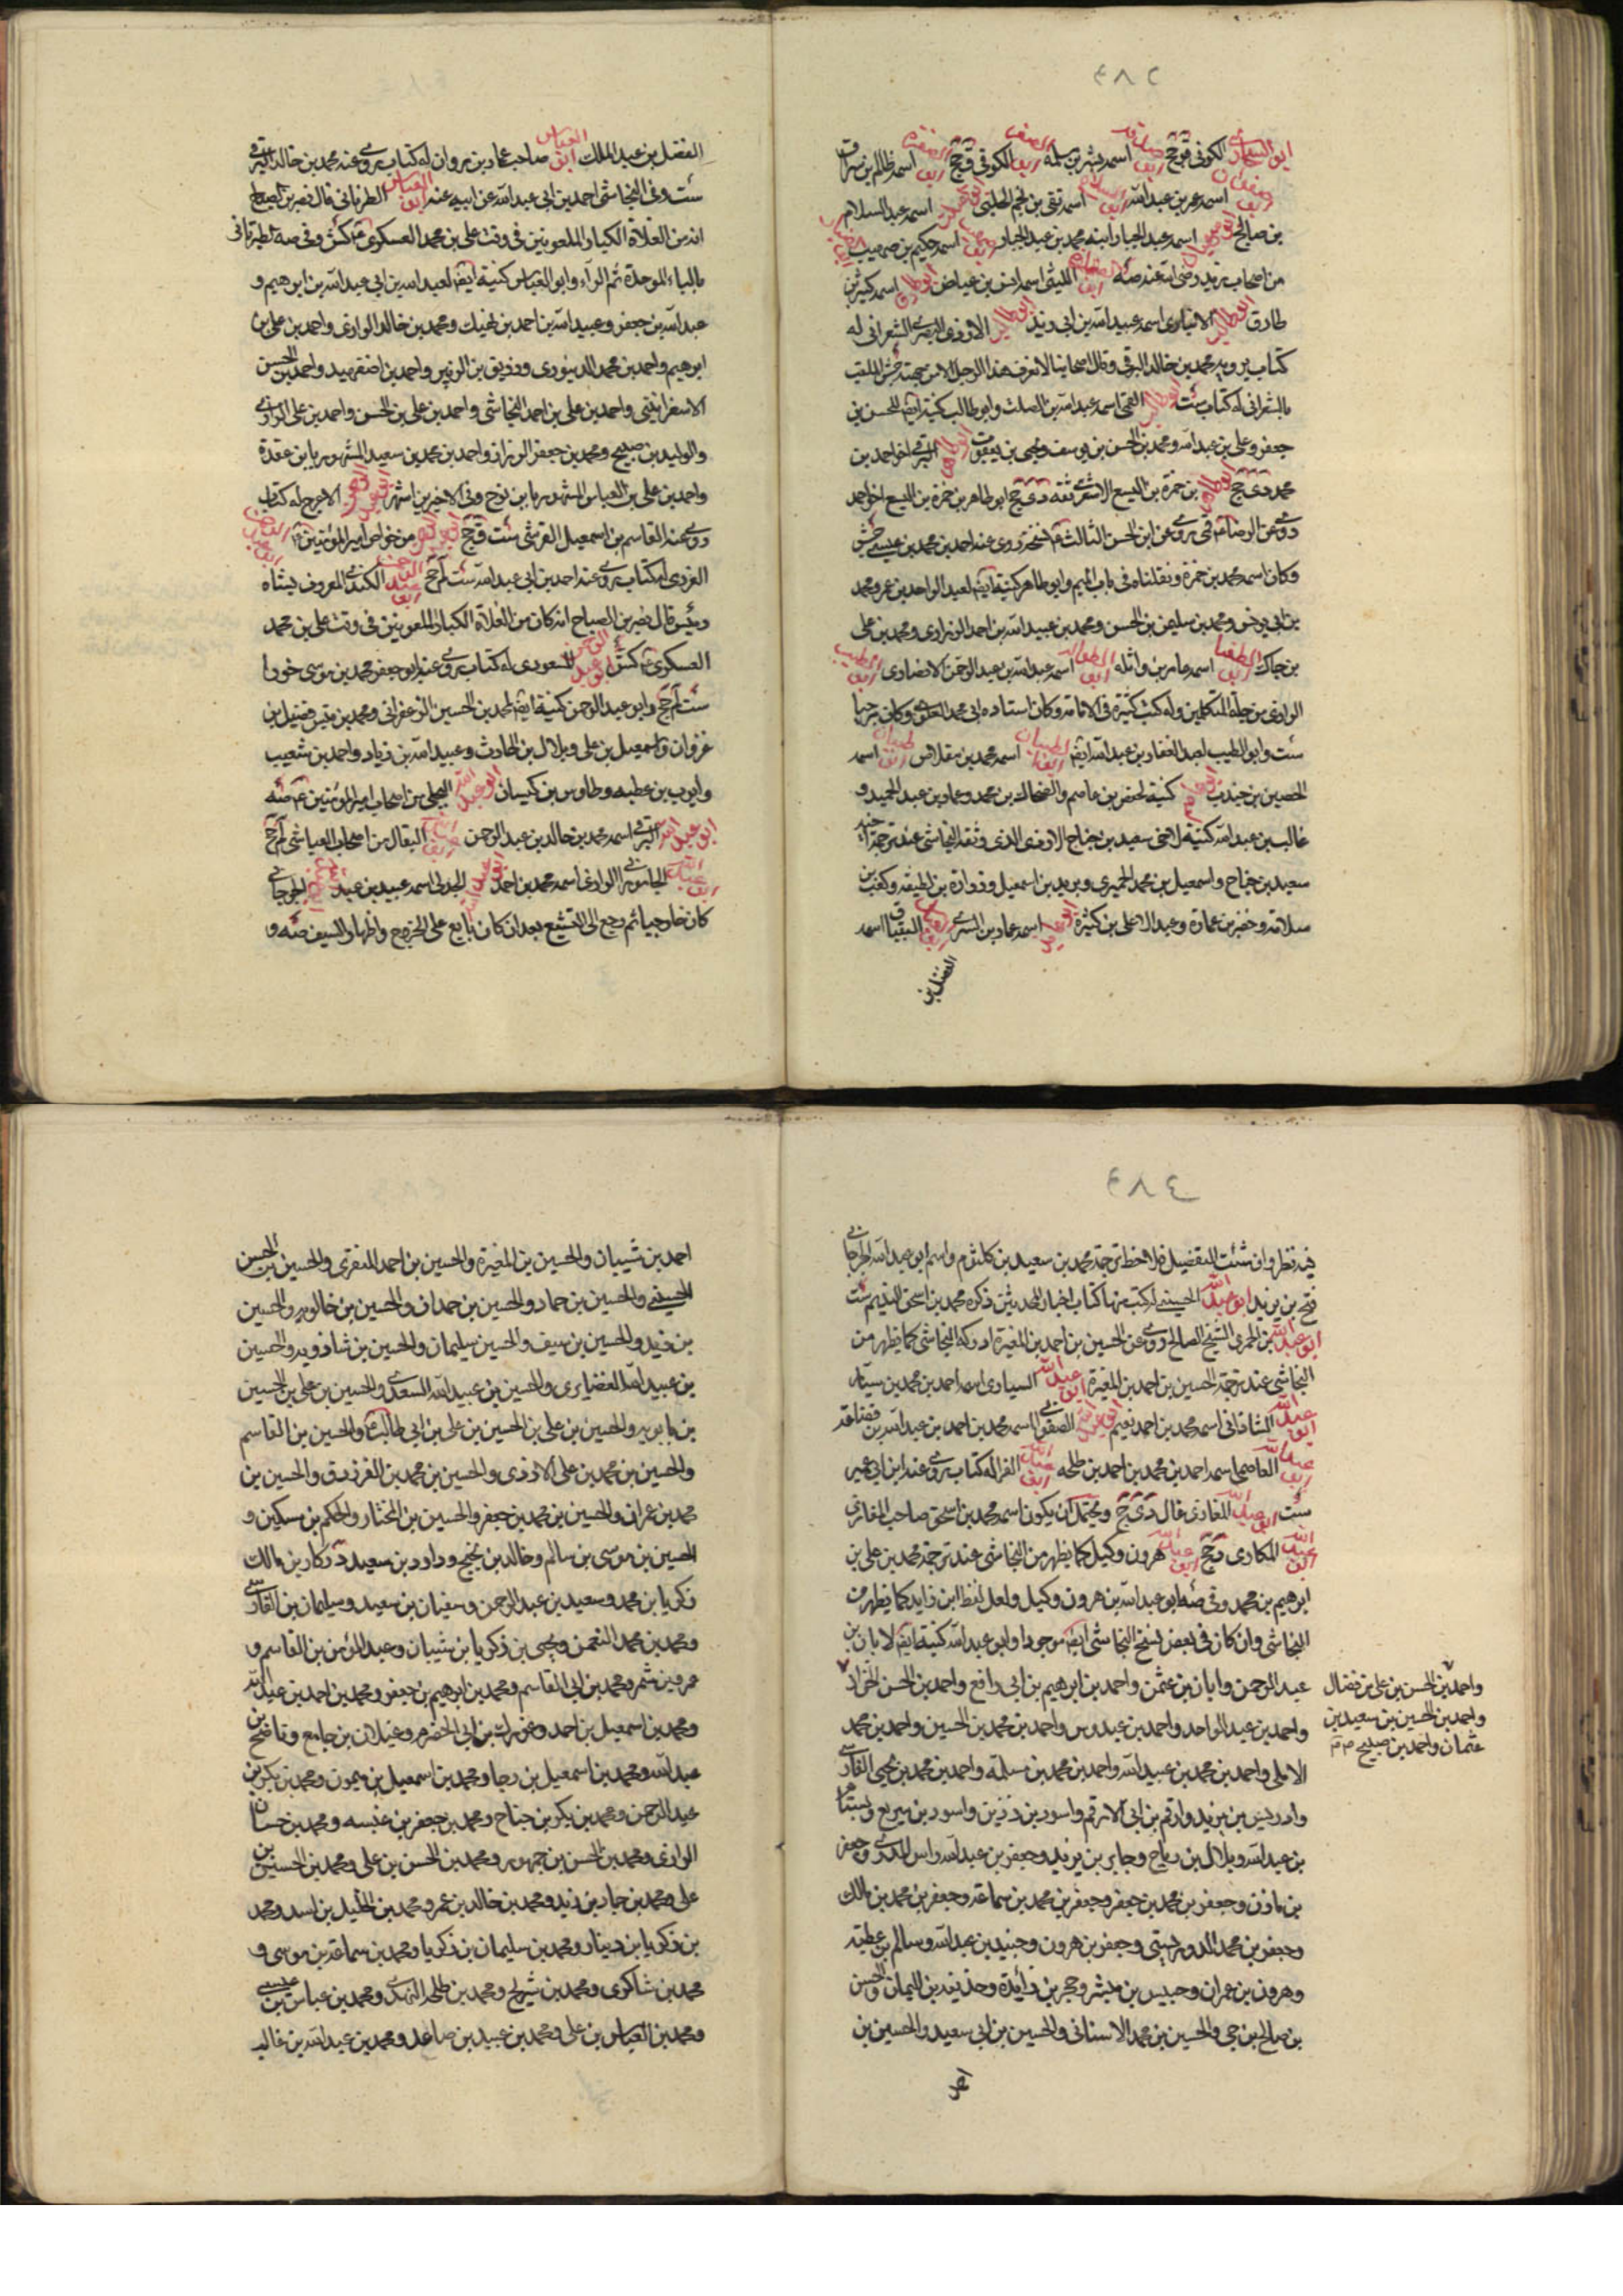 ٤٨٢
ابو السمال الكوفي ق جخ اسمه بشر بن سلمه الكوفي ق جخ اسمه ظالم بن سراق
اسمه عمر بن عبد الله اسمه تقي بن نجم الحلبي اسمه عبد السلام
بن صالح اسمه عبد الجبار ابنه محمد بن عبد الجبار اسمه حكيم بن صهيب
من اصحاب يزيد رضي الله عنه صه الليثي اسمه انس بن عياض ابو طارق اسمه كثير بن
طارق ابو طالب الانباري اسمه عبيد الله بن ابي زيد ابو طالب الازدي البصري الشعراني له
كتاب يرويه محمد بن خالد البرقي وقال اصحابنا لا نعرف هذا الرجل الا من جهته جش الملقب
بالشعراني له كتاب ست ابو طالب القمي اسمه عبد الله بن الصلت وابو طالب كنية ايضا للحسن بن
جعفر وعلي بن عبد الله ومحمد بن الحسن بن يوسف ويحيى بن يعقوب ابو طاهر البرقي اخو احمد بن
محمد دي جخ ابو طاهر بن حمزة بن اليسع الاشعري ثقه دي جخ ابو طاهر بن حمزة بن اليسع اخو احمد
روى عن الرضا قمي روى عن ابي الحسن الثالث نسخة روى عنه احمد بن محمد بن عيسى جش
وكان اسمه محمد بن حمزة ونقلناه في باب الميم وابو طاهر كنية ايضا لعبد الواحد بن عمر ومحمد
بن ابي يونس ومحمد بن سليمن بن الحسن ومحمد بن عبيد الله بن احمد الزراري ومحمد بن علي
بن جاك اسمه عامر بن واثله اسمه عبد الله بن عبد الرحمن الانصاري ابو الطيب
الرازي من جلة المتكلمين وله كتب كثيرة في الامامة وكان استاده ابي محمد العلوي وكان مرجيا
ست وابو الطيب لعبد الغفار بن عبد الله ايضا اسمه محمد بن مقلاس اسمه
الحصين بن جندب كنية لحفص بن عاصم والضحاك بن محمد وعماد بن عبد الحميد و
غالب بن عبد الله كنية لاخي سعيد بن جناح الازدي الذي وثقه النجاشي عند ترجمة اخيه
سعيد بن جناح واسمعيل بن محمد الحميري وبريد بن اسمعيل وزرارة بن لطيفه وكعب بن
سلامة وخضر بن عمارة وعبد الاعلى بن كثيرة ابو عامر اسمه عماد بن السري البقباق اسمه
الفضل بن
الفضل بن عبد الملك ابو العباس صاحب عمار بن مروان له كتاب يروى عنه محمد بن خالد البرقي
ست وفي النجاشي احمد بن ابي عبد الله عن ابيه عنه ابو العباس الطرناني قال نصر بن الصباح
انه من الغلاة الكبار الملعونين في وقت علي بن محمد العسكري كش وفي صه الطبرناني
بالباء الموحدة ثم الراء وابو العباس كنية ايضا لعبد الله بن ابي عبد الله بن ابرهيم و
عبد الله بن جعفر وعبيد الله بن احمد بن نهيك ومحمد بن خالد الرازي واحمد بن علي بن
ابرهيم واحمد بن محمد الدينوري ورزيق بن الزبير واحمد بن اصفهبد واحمد بن الحسن
الاسفرائيني واحمد بن علي بن احمد النجاشي واحمد بن علي بن الحسن واحمد بن علي الرازي
والوليد بن صبيح ومحمد بن جعفر الرزاز واحمد بن محمد بن سعيد المشهور بابن عقدة
واحمد بن علي بن العباس المشهور بابن نوح وفي الاخيرين اشهر الاعرج له كتاب
روى عنه القاسم بن اسمعيل القرشي ست ق جخ من خواص امير المؤمنين
العزرمي له كتاب يروى عنه احمد بن ابي عبد الله ست لم جخ ابو عبد الرحمن الكندي المعروف بشاه
رئيس قال نصر بن الصباح انه كان من الغلاة الكبار الملعونين في وقت علي بن محمد
العسكري كش ابو عبد الرحمن المسعودي له كتاب يروى عنه ابو جعفر محمد بن موسى خورا
ست لم جخ وابو عبد الرحمن كنية ايضا لمحمد بن الحسين الزعفراني ومحمد بن فضيل بن
غزوان واسمعيل بن علي وبلال بن الحارث وعبيد الله بن زياد واحمد بن شعيب
وايوب بن عطيه وطاوس بن كيسان ابو عبد الله البجلي من اصحاب امير المؤمنين صه
ابو عبد الله البرقي اسمه محمد بن خالد بن عبد الرحمن البقال من اصحاب العياشي لم جخ
الجاموراني الرازي اسمه محمد بن احمد ابو عبد الله الجدلي اسمه عبيد بن عبد الجرجاني
كان خارجيا ثم رجع الى التشيع بعد ان كان بايع على الخروج واظهار السيف صه و
٤٨٤
فيه نظر وان شئت التفصيل فلاحظ ترجمة محمد بن سعيد بن كلثوم واسم ابو عبد الله الجرجاني
فتح بن يزيد ابو عبد الله الحسيني له كتب منها كتاب اخبار المحدثين ذكره محمد بن اسحق النديم ست
ابو عبد الله بن الخمري الشيخ الصالح روى عن الحسين بن احمد بن المغيرة ادركه النجاشي كما يظهر من
النجاشي عند ترجمة الحسين بن احمد بن المغيرة ابو عبد الله السياري اسمه احمد بن محمد بن سيار
ابو عبد الله الشاذاني اسمه محمد بن احمد بن نعيم ابو عبد الله الصفواني اسمه محمد بن احمد بن عبد الله بن قضاعة
ابو عبد الله العاصمي اسمه احمد بن محمد بن احمد بن طلحه ابو عبد الله الفرا له كتاب يروى عنه ابن ابي عمير
ست ابو عبد الله المغازي غال دي جخ ويحتمل ان يكون اسمه محمد بن اسحق صاحب المغازي
ابو عبد الله المكاري ق جخ ابو عبد الله هرون وكيل كما يظهر من النجاشي عند ترجمة محمد بن علي بن
ابرهيم بن محمد وفي صه ابو عبد الله بن هرون وكيل ولعل لفظ ابن زايد كما يظهر من
النجاشي وان كان في بعض نسخ النجاشي ايضا موجودا وابو عبد الله كنية ايضا لابان بن
عبد الرحمن وابان بن عثمن واحمد بن ابرهيم بن ابي رافع واحمد بن الحسن الخزاز
واحمد بن عبد الواحد واحمد بن عبدوس واحمد بن محمد بن الحسين واحمد بن محمد
الاملي واحمد بن محمد بن عبيد الله واحمد بن محمد بن مسلمه واحمد بن محمد بن يحيى الفارسي
وادريس بن يزيد وارقم بن ابي الارقم واسود بن رزين واسود بن سريع وبسنا
بن عبد الله وبلال بن رباح وجابر بن يزيد وجعفر بن عبد الله راس المدري وجعفر
بن مازن وجعفر بن محمد بن جعفر وجعفر بن محمد بن سماعة وجعفر بن محمد بن مالك
وجعفر بن محمد الدوريستي وجعفر بن هرون وجنيد بن عبد الله وسالم بن عطيه
وهرون بن عمران وحبيس بن مبشر وحجر بن زايدة وحذيفه بن اليمان والحسن
بن صالح بن حي والحسين بن محمد الاسناني والحسين بن ابي سعيد والحسين بن
احمد
واحمد بن الحسن بن علي بن فضال
واحمد بن الحسين بن سعيد بن
عثمان واحمد بن صبيح
احمد بن شيبان والحسين بن المغيرة والحسين بن احمد المنقري والحسين بن الحسن
الحسيني والحسين بن حماد والحسين بن حمدان والحسين بن خالويه والحسين
بن زيد والحسين بن سيف والحسين سليمان والحسين بن شاذويه والحسين
بن عبيد الله الغضايري والحسين بن عبيد الله السعدي والحسين بن علي بن الحسين
بن بابويه والحسين بن علي بن الحسين بن علي بن ابي طالب والحسين بن القاسم
والحسين بن محمد بن علي الازدي والحسين بن محمد بن الفرزدق والحسين بن
محمد بن عمران والحسين بن محمد بن جعفر والحسين بن المختار والحكم بن مسكين و
الحسين بن موسى بن سالم وخالد بن نجيح وداود بن سعيد وزكار بن مالك
زكريا بن محمد وسعيد بن عبد الرحمن وسفيان بن سعيد وسليمان بن الفارسي
ومحمد بن محمد النعمن ويحيى بن زكريا بن شيبان وعبد المؤمن بن القاسم و
عمرو بن شمر ومحمد بن ابي القاسم ومحمد بن ابرهيم بن جعفر ومحمد بن احمد بن عبد الله
ومحمد بن اسمعيل بن احمد وعمران بن ابي الحضرم وغيلان بن جامع وناصح بن
عبد الله ومحمد بن اسمعيل بن رجا ومحمد بن اسمعيل بن ميمون ومحمد بن بكر بن
عبد الرحمن ومحمد بن بكر بن جناح ومحمد بن جعفر بن عنبسه ومحمد بن حسان
الرازي ومحمد بن الحسن بن جمهور ومحمد بن الحسن بن علي ومحمد بن الحسين بن
علي ومحمد بن حماد بن زيد ومحمد بن خالد بن عمر ومحمد بن الخليل بن اسد ومحمد
بن زكريا بن دينار ومحمد بن سليمان بن زكريا ومحمد بن سماعة بن موسى و
محمد بن شاكري ومحمد بن شريح ومحمد بن طلحة النهدي ومحمد بن عباس بن عيسى
ومحمد بن العباس بن علي ومحمد بن عبيد بن صاعد ومحمد بن عبد الله بن غالب